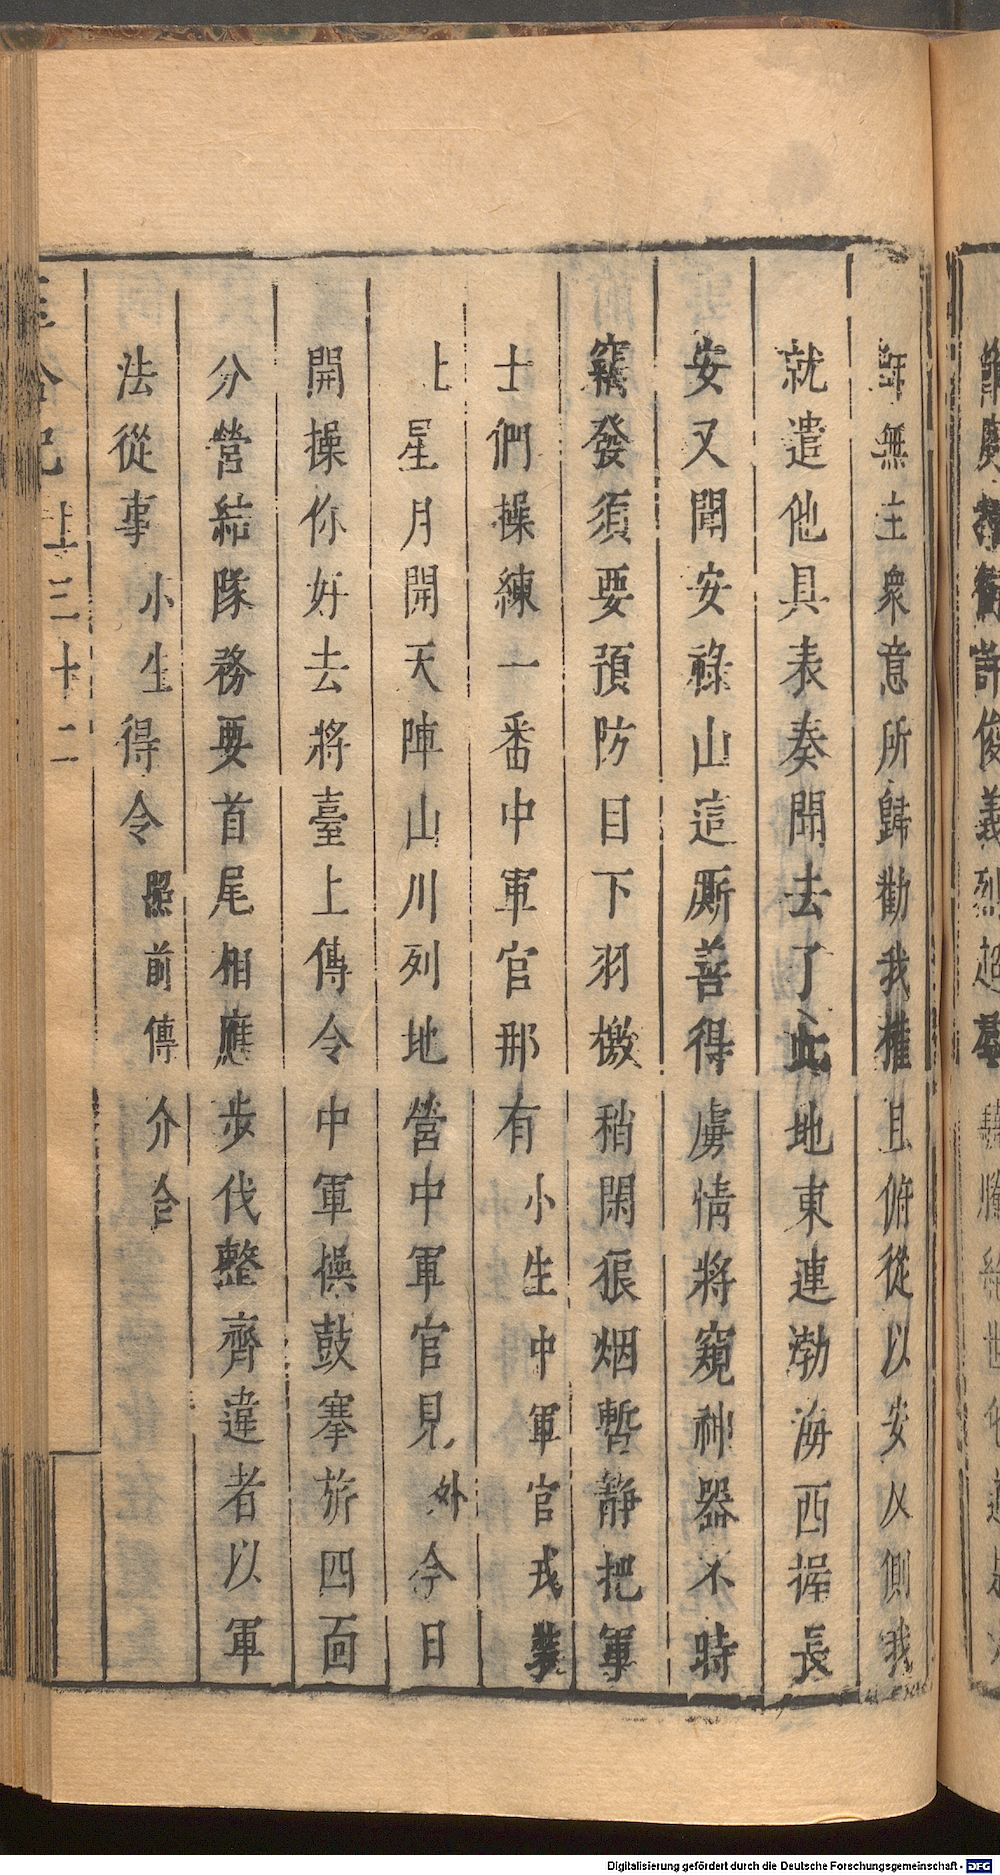 師無主衆意所歸勸我權且俯從以安反側我
就遣他具表奏聞去了此地東連渤海西握長
安又聞安祿山這厮善得虜情將窺神器不時
竊發須要預防目下羽檄稍閑狼烟暫靜把軍
士們操練一番中軍官那有小生中軍官戎裝
上星月開天陣山川列地營中軍官見外今日
開操你好去將臺上傳令中軍操鼓搴旂四面
分營結隊務要首尾相應步伐整齊違者以軍
法從事小生得令照前傳介合
上三十二
Digitalisierung gefördert durch die Deutsche Forschungsgemeinschaft - DFG